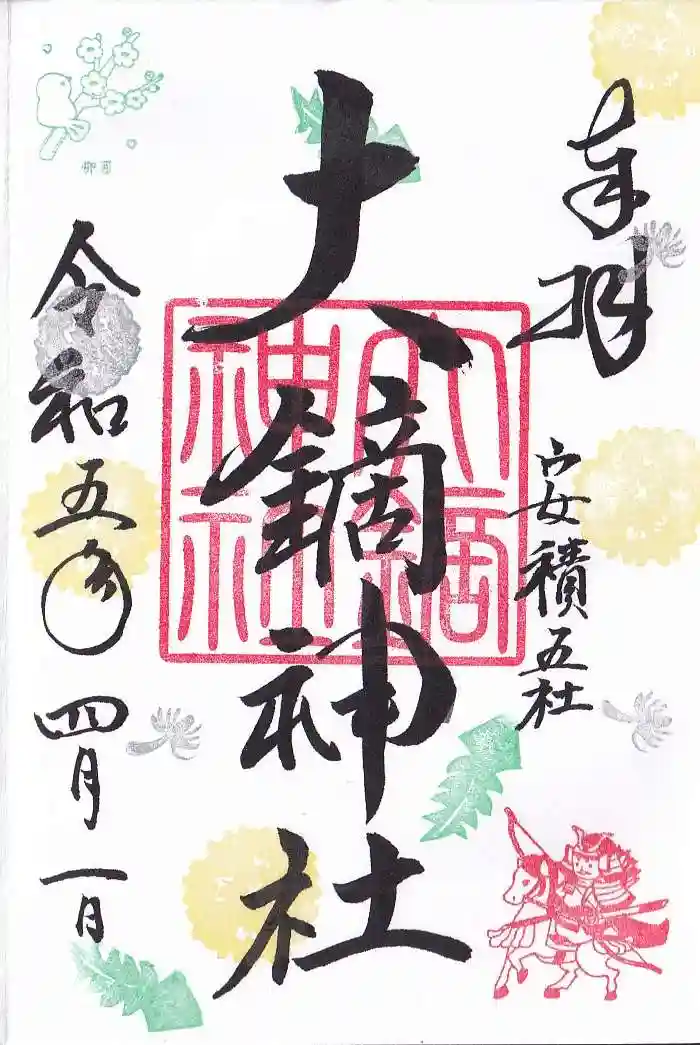 奉拝
安積五社
大鏑神社
大鏑
神社
令和五年 四月一日